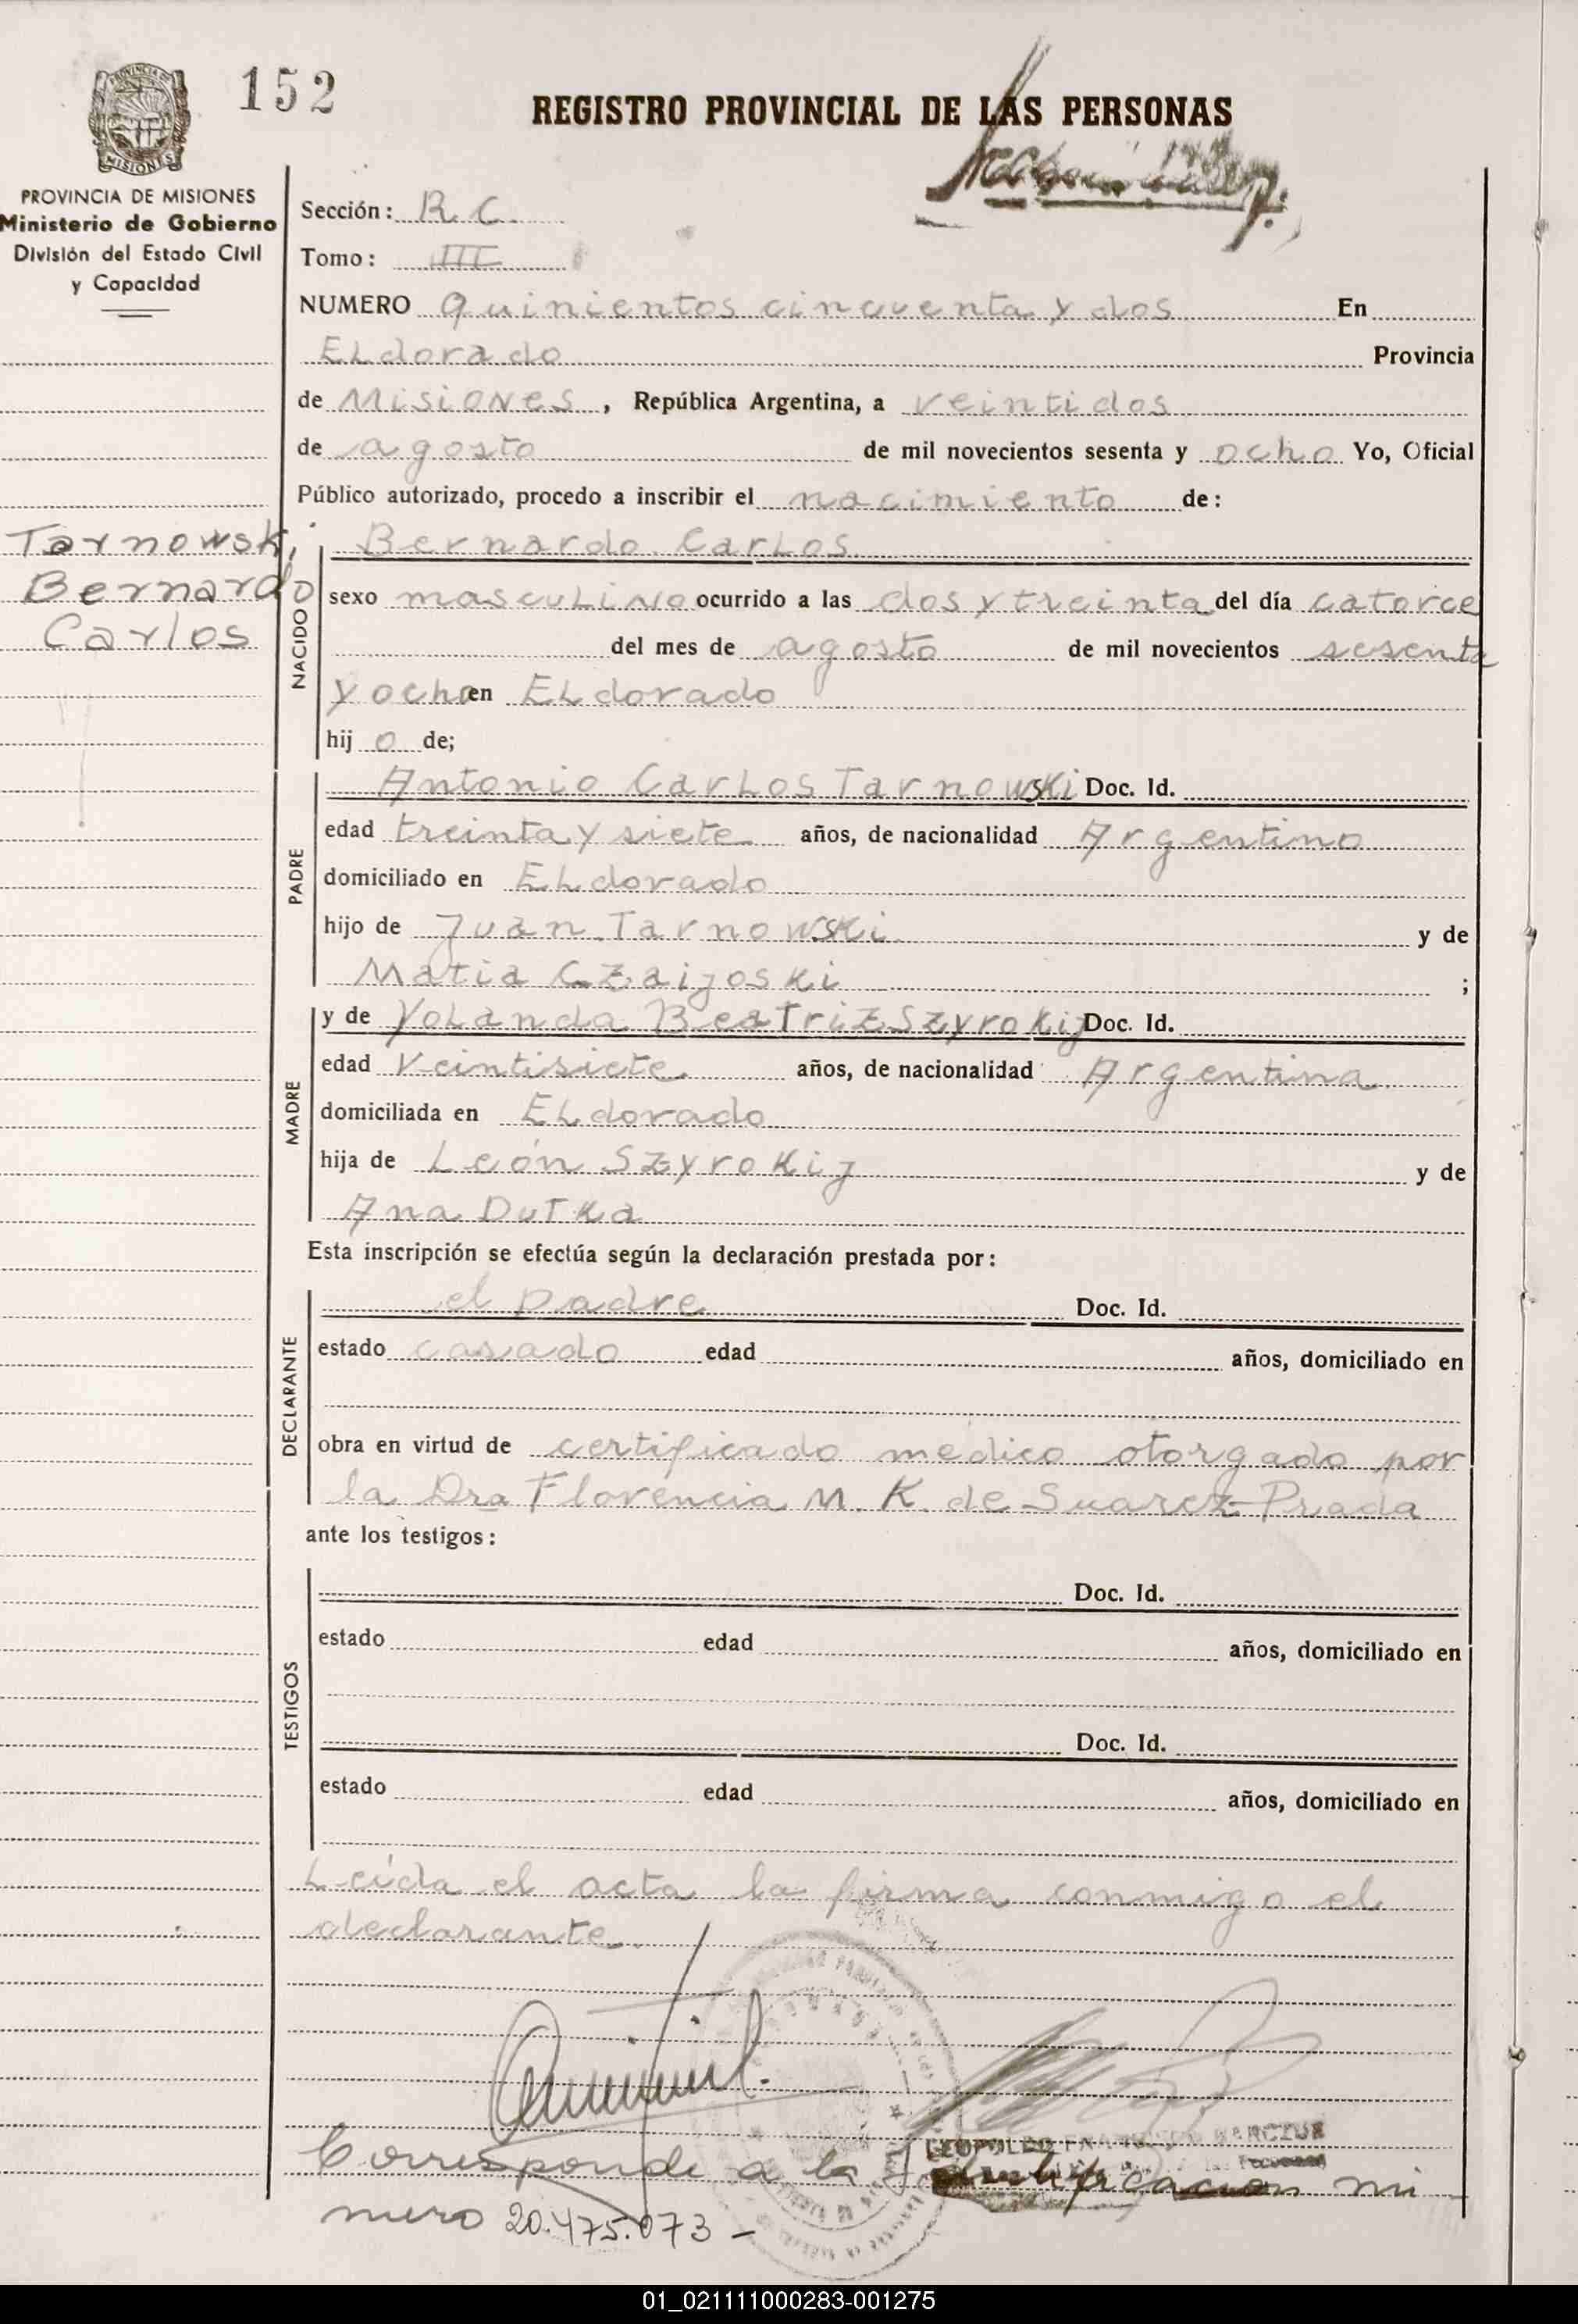 152
REGISTRO PROVINCIAL DE LAS PERSONAS
PROVINCIA DE MISIONES
Ministerio de Gobierno
División del Estado Civil
y Capacidad
Sección: R C.
Tomo: III
NUMERO Quinientos cincuenta y dos En
ELdorado Provincia
de Misiones, República Argentina, a veintidos
de agosto de mil novecientos sesenta y ocho Yo, Oficial
Público autorizado, procedo a inscribir el nacimiento de:
Tarnowski
Bernardo
Carlos
NACIDO
Bernardo Carlos
sexo masculino ocurrido a las dos y treinta del día catorce
del mes de agosto de mil novecientos sesenta
y ocho en ELdorado
hij o de;
PADRE
Antonio Carlos Tarnowski Doc. Id.
edad treinta y siete años, de nacionalidad Argentino
domiciliado en ELdorado
hijo de Juan Tarnowski y de
Matia Czaijoski ;
MADRE
y de Yolanda Beatriz Szyrokij Doc. Id.
edad Veintisiete años, de nacionalidad Argentina
domiciliada en ELdorado
hija de León Szyrokij y de
Ana Dutka
Esta inscripción se efectúa según la declaración prestada por:
DECLARANTE
el padre Doc. Id.
estado casado edad años, domiciliado en
obra en virtud de certificado medico otorgado por
la Dra Florencia M. K. de Suarez Prada
ante los testigos:
TESTIGOS
Doc. Id.
estado edad años, domiciliado en
Doc. Id.
estado edad años, domiciliado en
Leida el acta la firma conmigo el
declarante.
LEOPOLDO
Corresponde a la Identificacion nu
mero 20.475.073 -
01_021111000283-001275